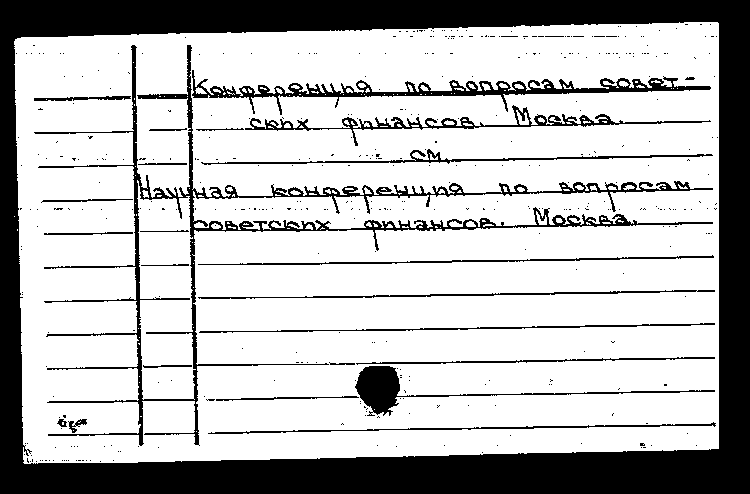 Конференция по вопросам совет-
ских финансов. Москва.
см.
Научная конференция по вопросам
советских финансов. Москва.